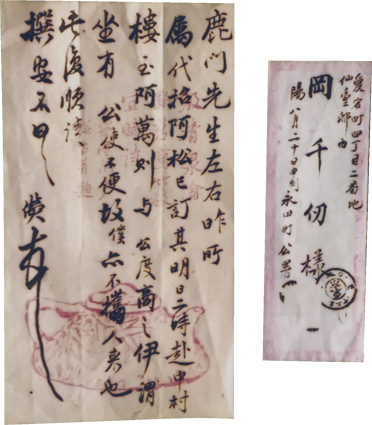 鹿門先生左右昨所
屬代招阿松已訂其明日二時赴中村
樓至阿萬則与公度商之伊謂
坐有公使不便故僕亦不攜人來也
此復順請
撰安不日
愛宕町四丁目二番地
仙臺邸内
岡千仞様
陽八月二十日申刻永田町公署